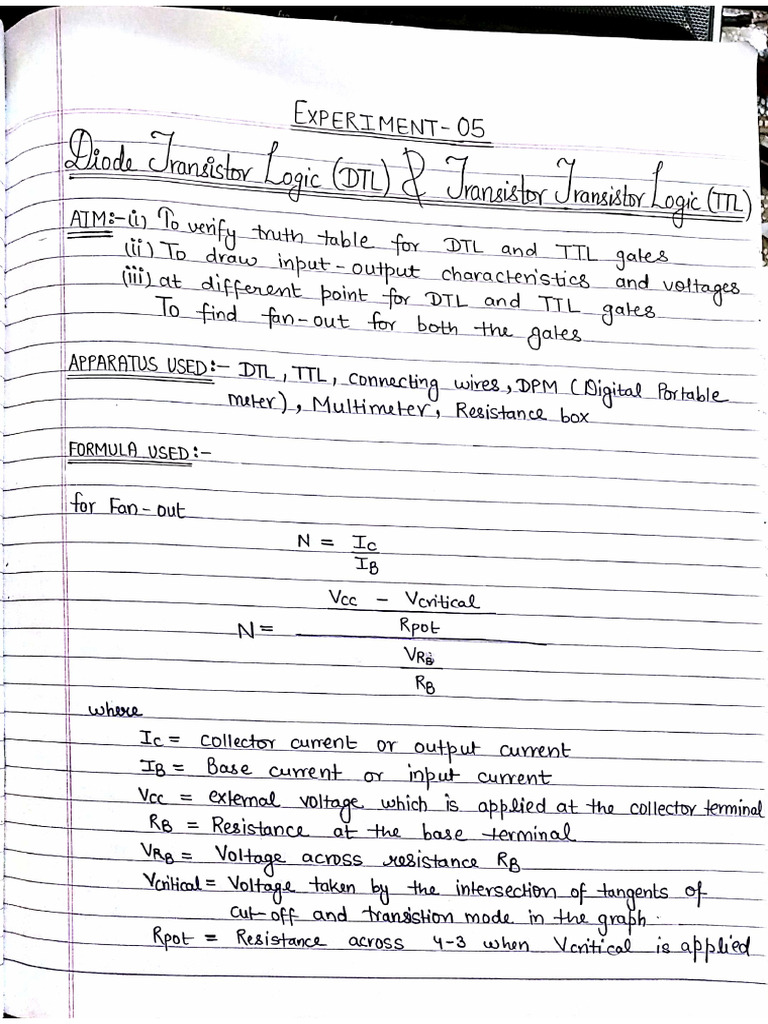 EXPERIMENT-05
Diode Transistor Logic (DTL) & Transistor Transistor Logic (TTL)
AIM:-(i) To verify truth table for DTL and TTL gates
(ii) To draw input-output characteristics and voltages
(iii) at different point for DTL and TTL gates
To find fan-out for both the gates
APPARATUS USED:- DTL, TTL, connecting wires, DPM (Digital Portable
meter), Multimeter, Resistance box
FORMULA USED:-
for Fan-out
N = IC
IB
Vcc - Vcritical
N = Rpot
VRB
RB
where
IC = collector current or output current
IB = Base current or input current
Vcc = external voltage which is applied at the collector terminal
RB = Resistance at the base terminal
VRB = Voltage across resistance RB
Vcritical = Voltage taken by the intersection of tangents of
cut-off and transistion mode in the graph.
Rpot = Resistance across 4-3 when Vcritical is applied